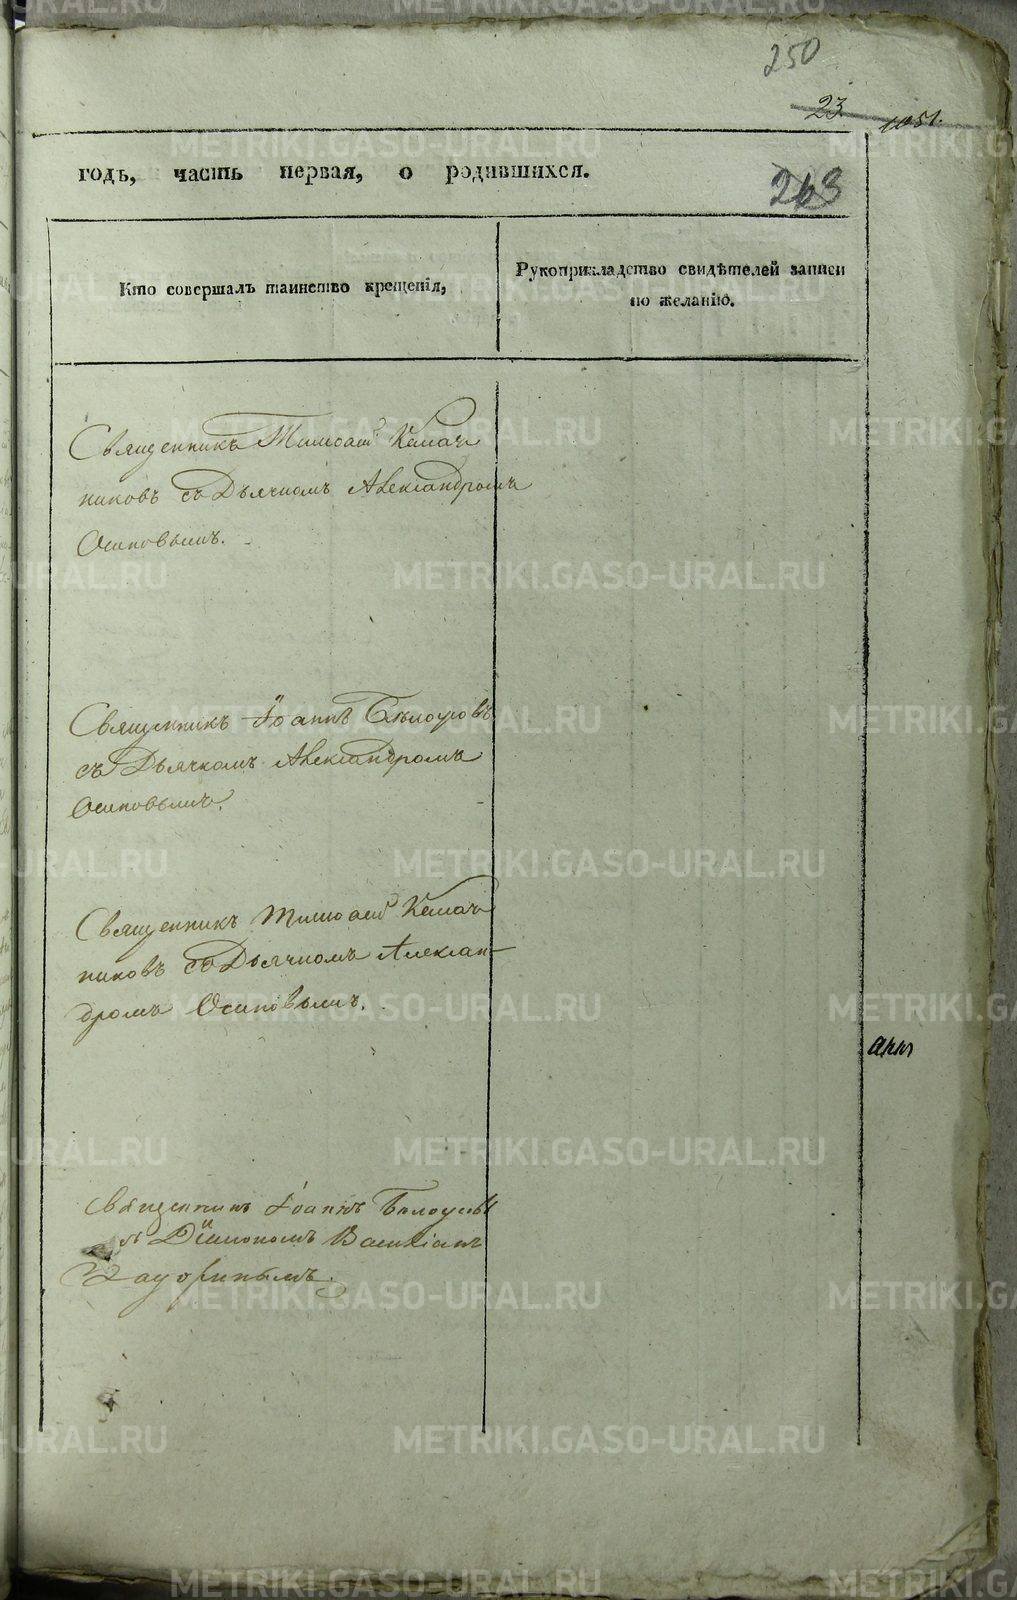 250
23
1051.
годъ, часть первая, о родившихся.
263
Кто совершалъ таинство крещенія,
Рукоприкладство свидѣтелей записи
по желанію.
Священникъ
никовъ съ Дьячкомъ Александромъ
Осиповымъ.
Священникъ Іоаннъ Бѣлоусовъ
съ Дьячкомъ Александромъ
Осиповымъ.
Священникъ
никовъ съ Дьячкомъ Алексан-
дромъ Осиповымъ.
Священникъ Іоаннъ
съ Діакономъ
METRIKI.GASO-URAL.RU